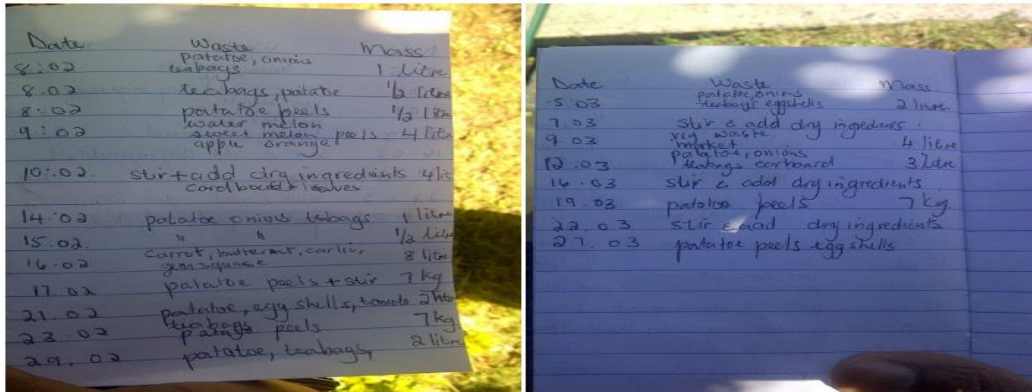 Date Waste Mass
patatoe, onions
8:02 teabags 1 litre
8.02 teabags, patatoe 1/2 litre
8:02 patatoe peels 1/2 litre
water melon
9:02 sweet melon peels 4 litre
apple orange
10:02. stir + add dry ingredients 4 lit
cardboard + leaves
14:02 patatoe onions teabags 1 litre
15.02. " " 1/2 litre
16.02 carrot, butternut, 8 litre
gem squase
17.02 patatoe peels + stir 7 kg
21.02 patatoe, egg shells, tomato 2
teabags
23.02 peels 7kg
29.02 patatoe, teabags, 2 litre
Date Waste Mass
patatoe, onions
5 03 teabags eggshells 2 litre
7.03 stir & add dry ingredients.
9 03 waste.
market 4 litre
patatoe, onions
12.03 teabags carboard 3 litre
16.03 stir & add dry ingredients.
19.03 patatoe peels 7 kg
22.03 stir & add dry ingredients
27.03 patatoe peels eggshells